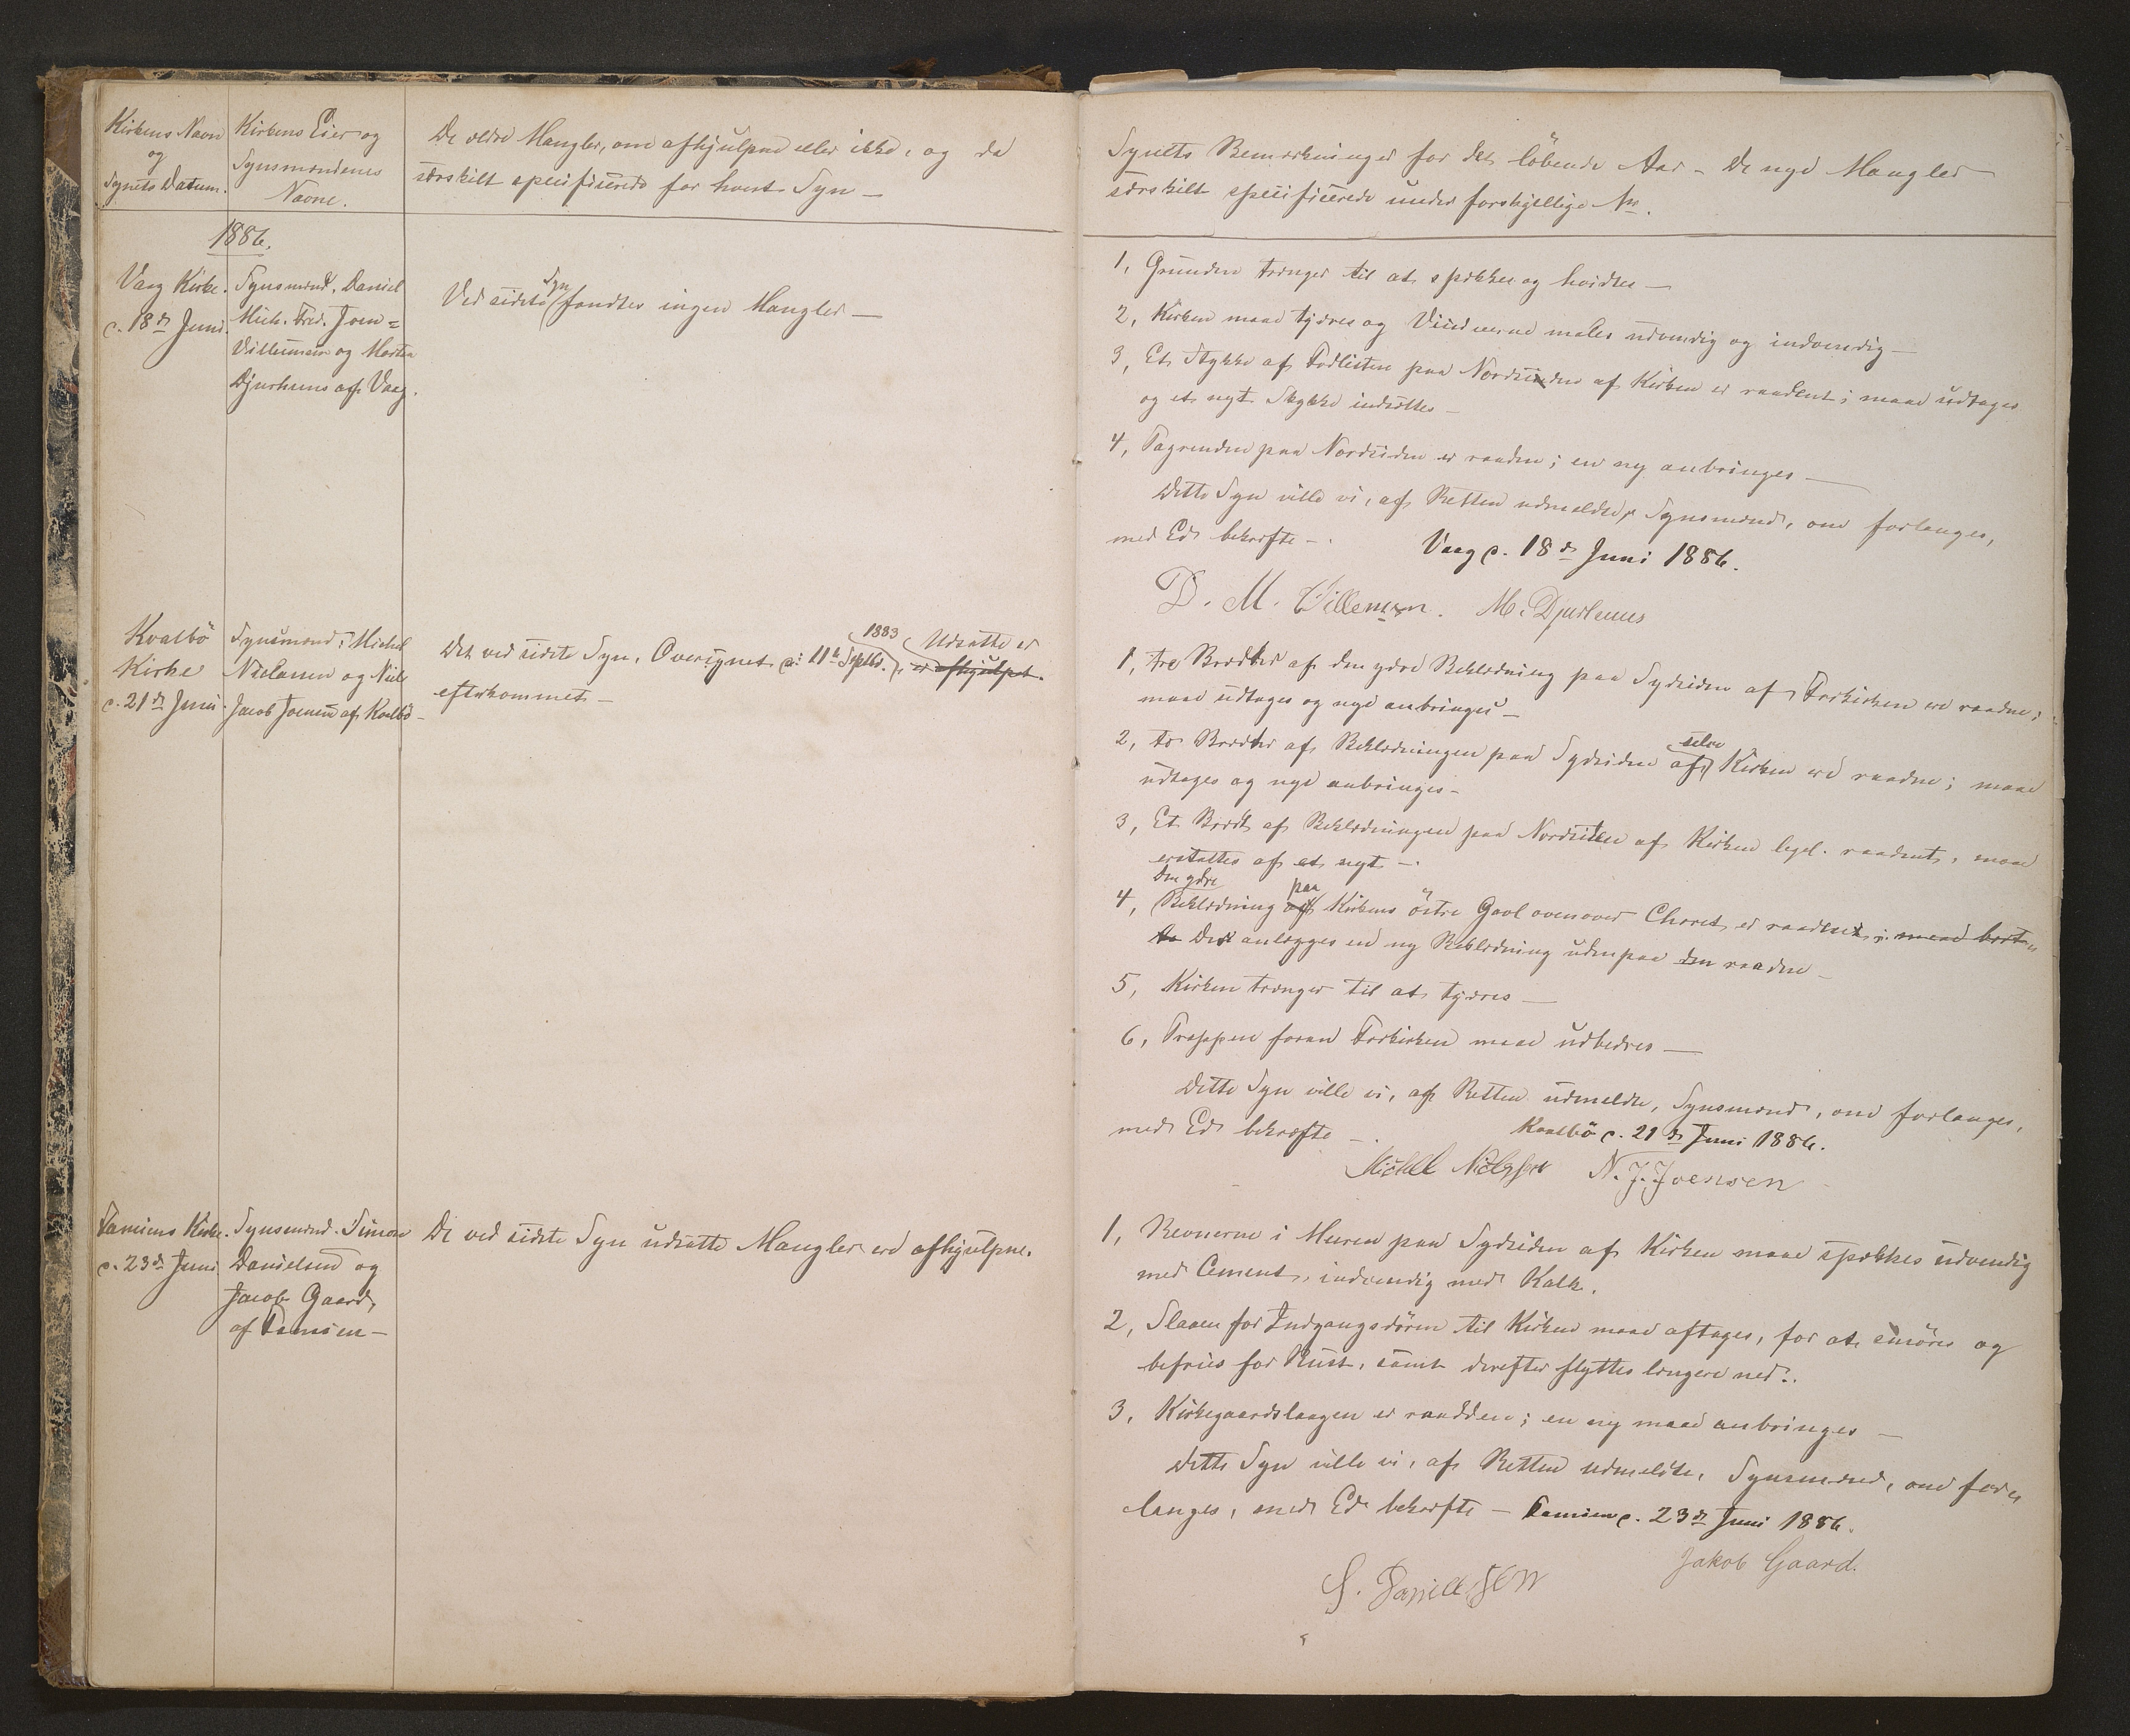 Kirkens Navn
og
Synets Datum.
Kirkens Eier og
Synsmændenes
Navne.
De ældre Mangler, om afhjulpne eller ikke, og da
særskilt specificerede for hvert Syn —
1886.
Vaag Kirke.
d. 18de Juni.
Synsmænd, Daniel
Mich. Fred. Joen=
Villumsen og Morten
Djurhuus af Vaag.
Ved sidste Syn fandtes ingen Mangler —
Kvalbö
Kirke
d. 21de Juni
Synsmænd: Michel
Nielsen og Niels
Jacob Joensen af Kvalbö —
Det ved sidste Syn, Oversynet d: 11te Septbr. 1883, Udsatte er
er afhjulpet.
efterkommet —
Famiens Kirke.
d. 23de Juni
Synsmænd. Simon
Danielsen og
Jacob Gaard,
af Famien —
De ved sidste Syn udsatte Mangler ere afhjulpne.
Synets Bemærkninger for det löbende Aar – De nye Mangler
særskilt specificerede under forskjellige No.
1, Grunden trænger til at spækkes og hvidtes —
2, Kirken maa tjæres og Vinduerne males udvendig og indvendig —
3, Et Stykke af Fodlisten paa Nordsiden af Kirken er raadent; maa udtages
og et nyt Stykke indsættes —
4, Tagrenden paa Nordsiden er raaden; en ny anbringes —
Dette Syn ville vi, af Retten udmeldte, Synsmænd, om forlanges,
med Ed bekræfte —. Vaag d. 18de Juni 1886.
D. M. Villemsen. M. Djurhuus
1, tre Brædder af den ydre Beklædning paa Sydsiden af Forkirken ere raadne;
maa udtages og nye anbringes —
2, to Brædder af Beklædningen paa Sydsiden af selve Kirken ere raadne; maa
udtages og nye anbringes —
3, Et Bræt af Beklædningen paa Nordsiden af Kirken ligel. raadent, maa
erstattes af et nyt —.
4, Den ydre Beklædning af paa Kirkens östre Gavl ovenover Choret er raaden; maa bort=
Der anlægges en ny Beklædning udenpaa den raadne —
5, Kirken trænger til at tjæres —
6, Trappen foran Forkirken maa udbedres —
Dette Syn ville vi, af Retten udmeldte, Synsmænd, om forlanges,
med Ed bekræfte —. Kvalbö d. 21de Juni 1886.
Michel Nielssen N. J. Joensen
1, Revnerne i Muren paa Sydsiden af Kirken maa spækkes udvendig
med Cement, indvendig med Kalk.
2, Slaaen for Indgangsdören til Kirken maa aftages, for at smöres og
befries for Rust, samt derefter flyttes længere ned.
3, Kirkegaardslaagen er raadden; en ny maa anbringes —
Dette Syn ville vi, af Retten udmeldte, Synsmænd, om for=
langes, med Ed bekræfte — Famien d. 23de Juni 1886.
S. Danielsen Jakob Gaard.